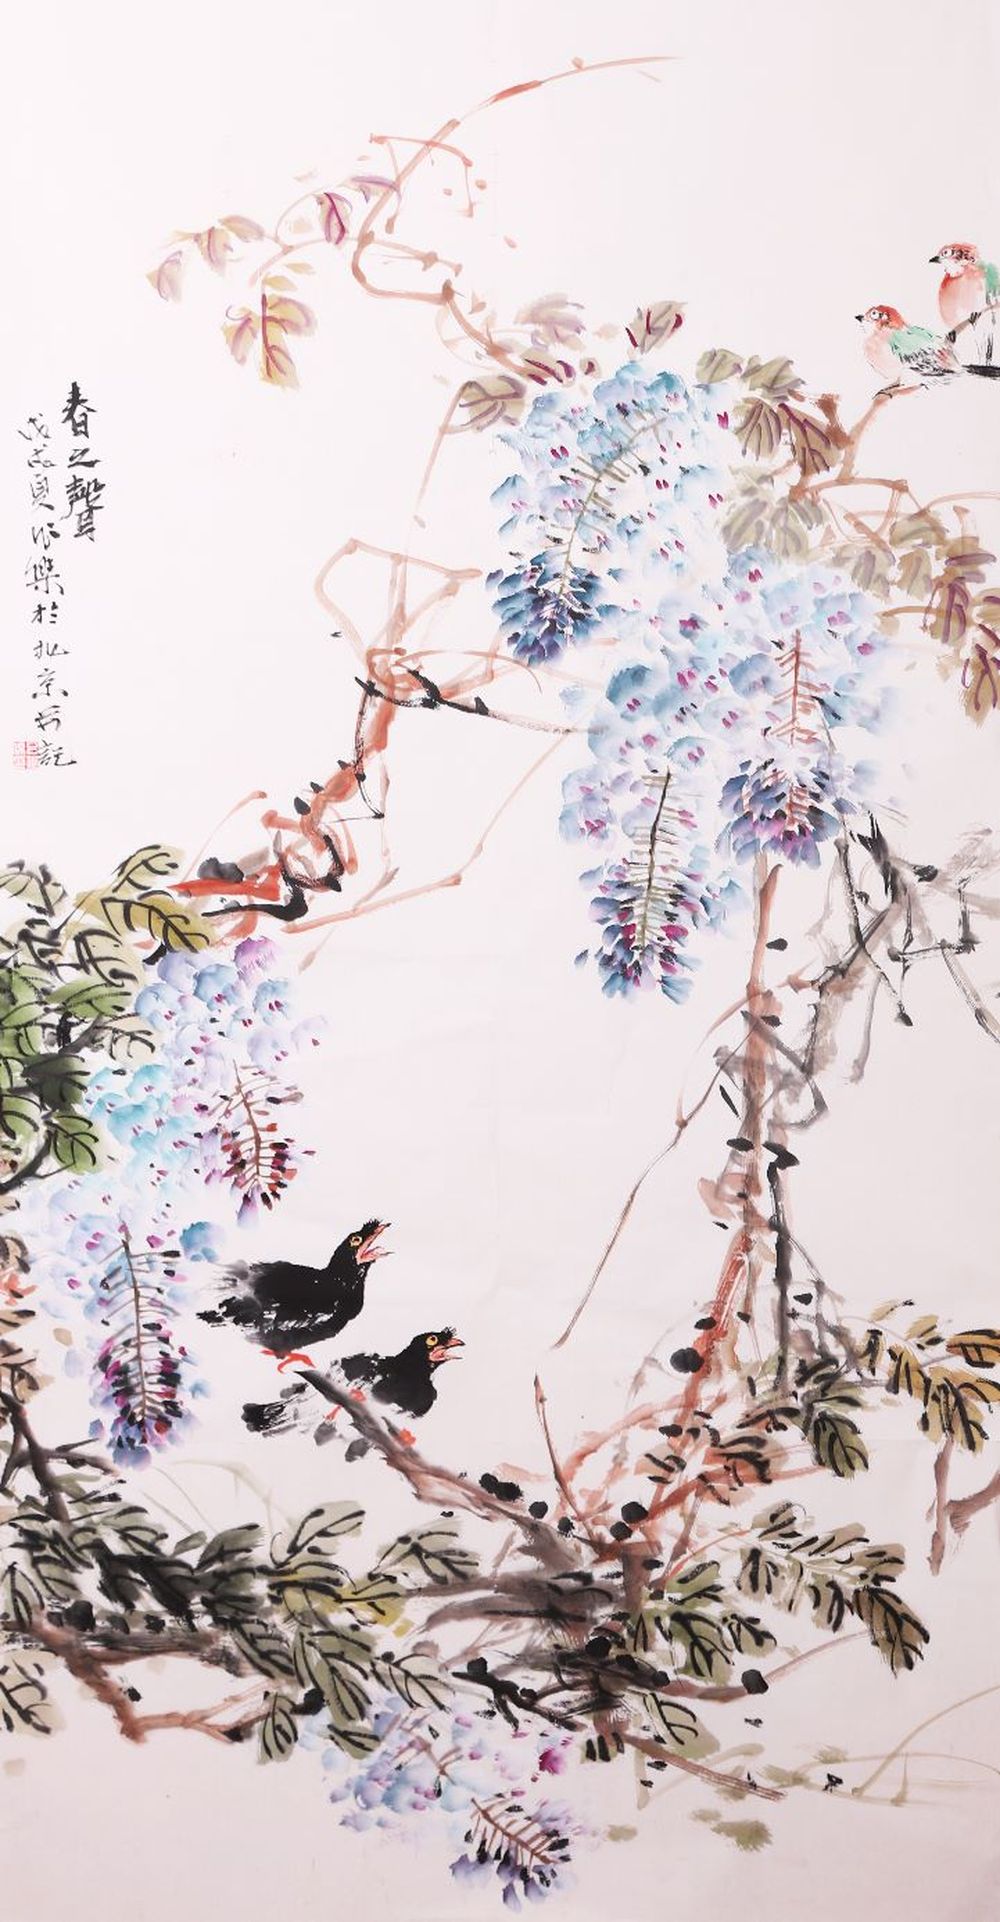 春之聲
戊戌夏 樂於北京 記